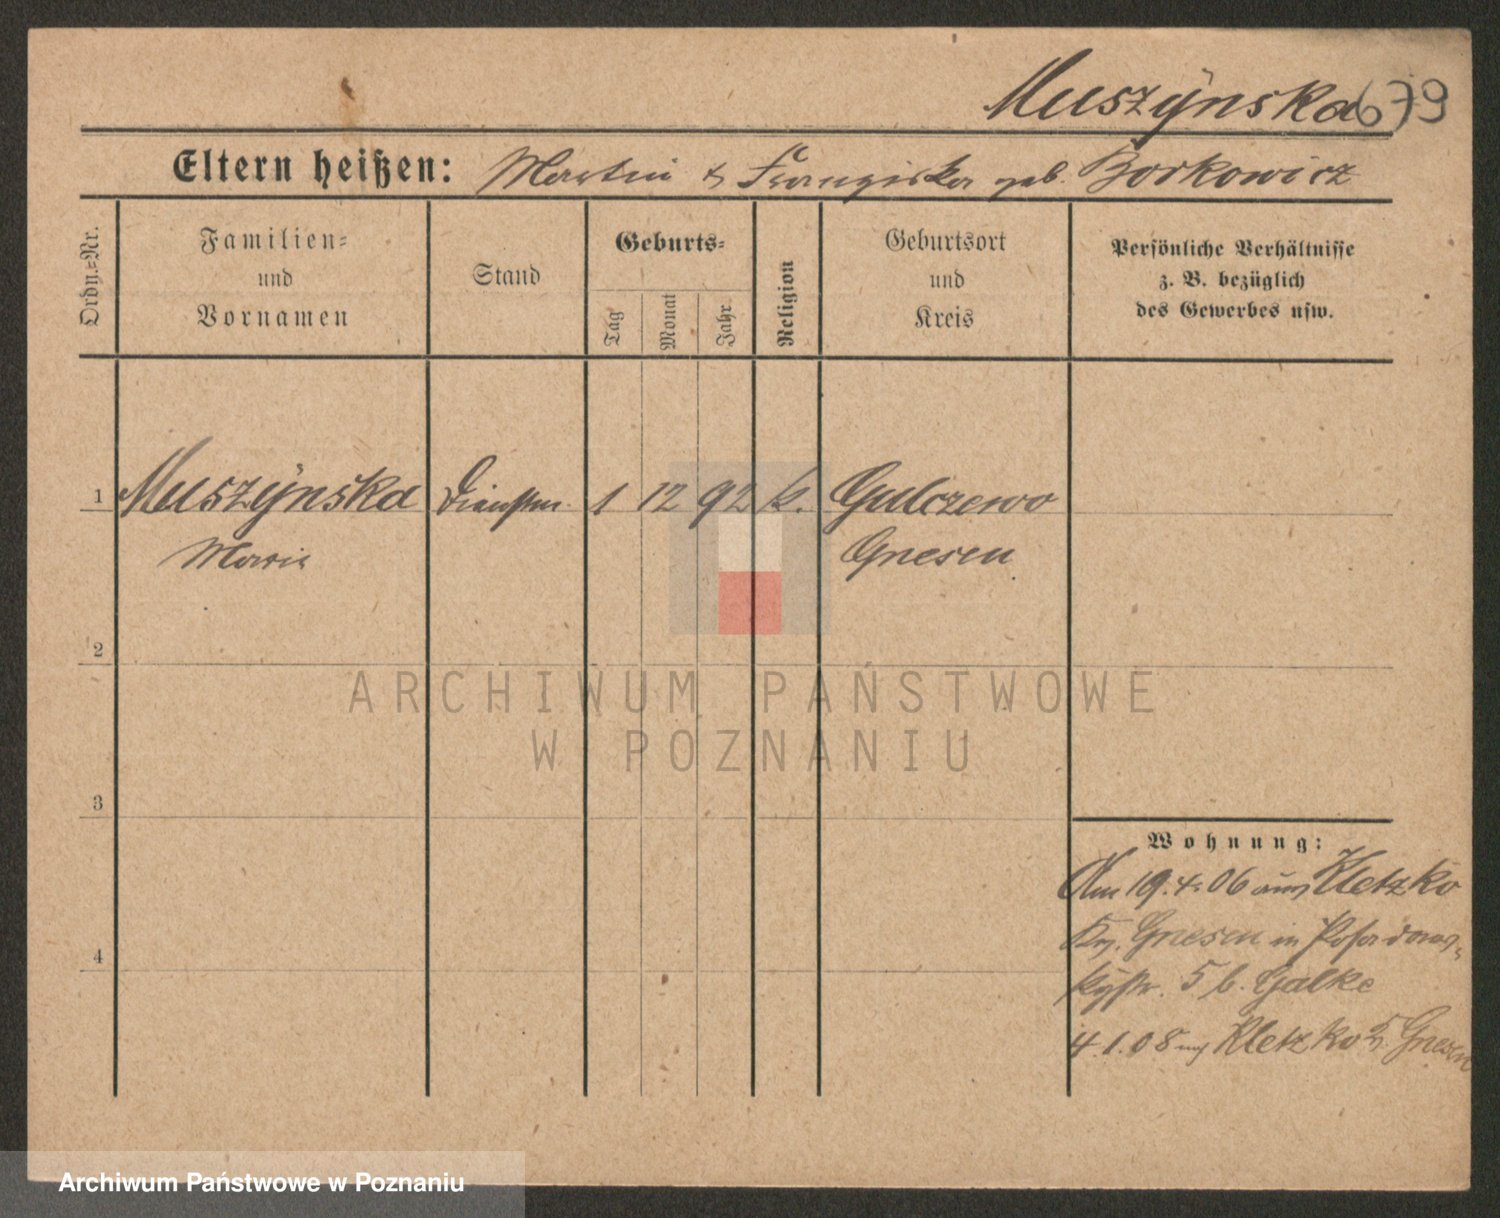 Muszÿnska 679
Eltern heißen: Martin & Franziska geb. Borkowicz
Ordn.=Nr.
Familien=
und
Vornamen
Stand
Geburts=
Tag
Monat
Jahr
Religion
Geburtsort
und
Kreis
Persönliche Verhältnisse
z. B. bezüglich
des Gewerbes usw.
1 Muszÿnska Dienstm. 1 12 92 k. Gulczewo
Marie Gnesen
2
3
4
Wohnung:
Am 19.4.06 aus Kletzko
Kr. Gnesen in Posadows-
kÿstr. 5 b. Galke
4.1.08 Kletzko Gnesen
ARCHIWUM PAŃSTWOWE
W POZNANIU
Archiwum Państwowe w Poznaniu